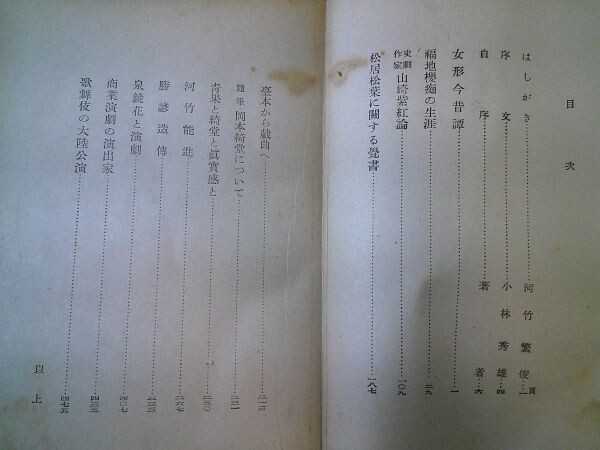 目次
はしがき……河竹繁俊…一頁
序文……小林秀雄…四
自序……著者…六
女形今昔譚……一
福地櫻痴の生涯……二九
史劇作家 山崎紫紅論……一〇九
松居松葉に關する覺書……一八七
臺本から戯曲へ……二一三
隨筆 岡本綺堂について……二三一
青果と綺堂と眞實感と……二五〇
河竹能進……二六七
勝諺造傳……三三三
泉鏡花と演劇……四〇七
商業演劇の演出家……四三五
歌舞伎の大陸公演……四七五
以上